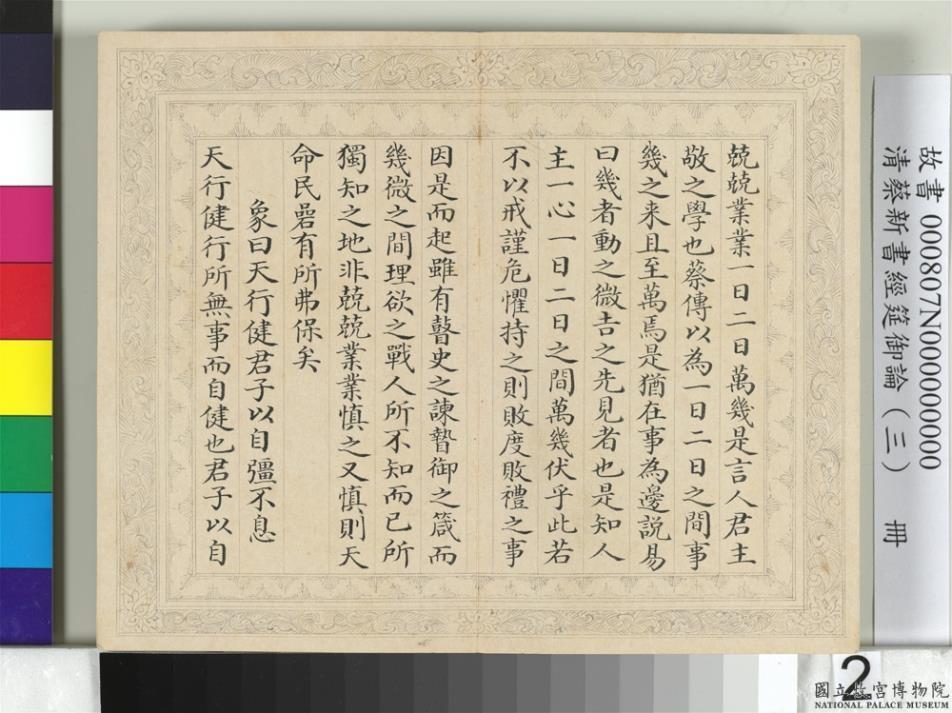 兢兢業業一日二日萬幾是言人君主
敬之學也蔡傳以為一日二日之間事
幾之来且至萬焉是猶在事為邊説易
曰幾者動之微吉之先見者也是知人
主一心一日二日之間萬幾伏乎此若
不以戒謹危懼持之則敗度敗禮之事
因是而起雖有瞽史之諫暬御之箴而
幾微之間理欲之戰人所不知而已所
獨知之地非兢兢業業慎之又慎則天
命民碞有所弗保矣
象曰天行健君子以自彊不息
天行健行所無事而自健也君子以自
故書 000807N000000000
清蔡新書經筵御論（三） 冊
2
國立故宮博物院
NATIONAL PALACE MUSEUM